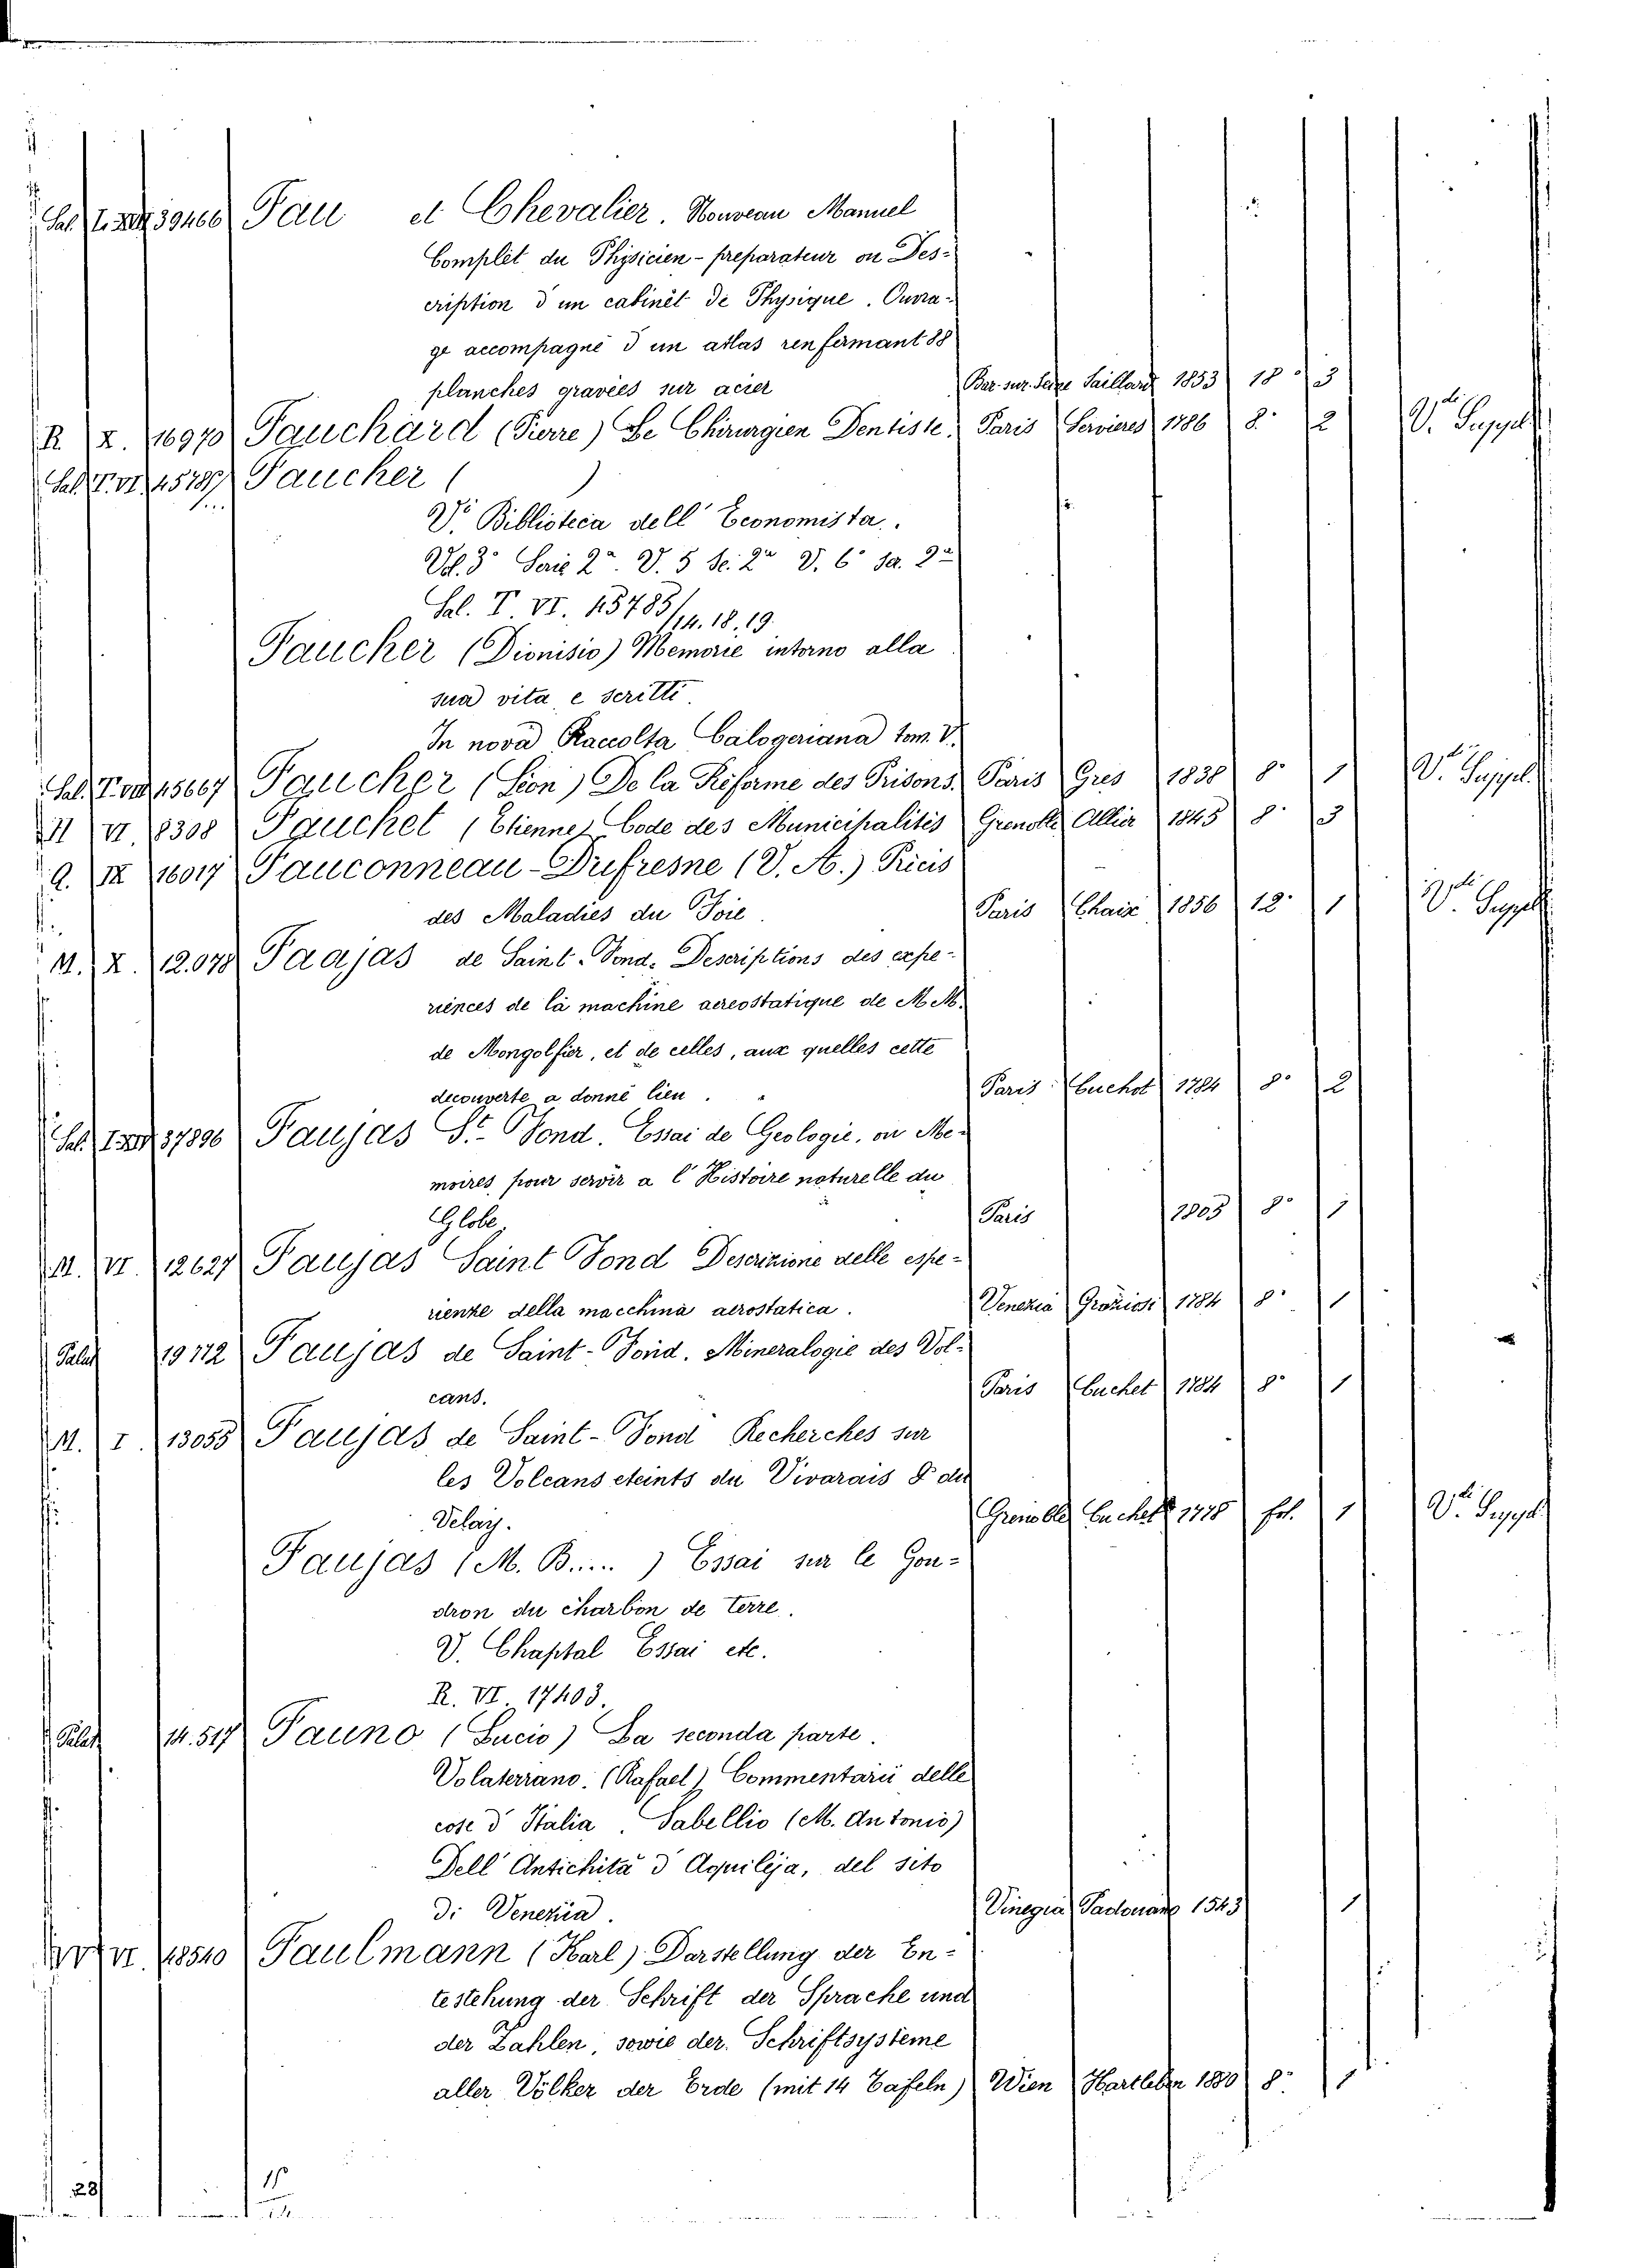 Sal. T. XXI 39466 Fau et Chevalier. Nouveau Manuel
Complèt du Physicien-preparateur ou Des-
cription d'un cabinèt de Physique. Ouvra-
ge accompagné d'un atlas renfermant 88
planches gravées sur acier Bar-sur-Seine Saillard 1853 18° 3
R X. 16970 Fauchard (Pierre) Le Chirurgien Dentiste. Paris Servieres 1786 8° 2 V.di Suppl.
Sal. T. VI. 45787 Faucher ( )
V.i Biblioteca dell' Economista.
Vol. 3° Serie 2a. V. 5 Se. 2a V. 6° Se. 2a
Sal. T. VI. 45785/14. 18. 19.
Faucher (Dionisio) Memorie intorno alla
sua vita e scritti.
In nova Raccolta Calogeriana tom. V.
Sal. T. VIII 45667 Faucher (Léon) De la Réforme des Prisons. Paris Gres 1838 8° 1 V.di Suppl.
M VI. 8308 Fauchet (Etienne) Code des Municipalités Grenoble Allier 1845 8° 3
Q. IX 16017 Fauconneau-Dufresne (V. A.) Précis
des Maladies du Foie. Paris Chaix 1856 12° 1 V.di Suppl.
M. X. 12.078 Faujas de Saint-Fond. Descriptions des expe-
riences de la machine aereostatique de M M.
de Mongolfier, et de celles, aux quelles cette
decouverte a donné lieu. Paris Cuchot 1784 8° 2
Sal. T. XXI 37896 Faujas St. Fond. Essai de Geologie, ou Me-
moires, pour servir a l'Histoire naturelle du
Globe. Paris 1803 8° 1
M. VI. 12627 Faujas Saint Fond Descrizione delle espe-
rienze della macchina aerostatica. Venezia Graziosi 1784 8° 1
Palat 19772 Faujas de Saint-Fond. Mineralogie des Vol-
cans. Paris Cuchet 1784 8° 1
M. I. 13055 Faujas de Saint-Fond Recherches sur
les Volcans eteints du Vivarais & du
Velay. Grenoble Cuchet 1778 fol. 1 V.di Suppl.
Faujas (M. B.....) Essai sur le Gou-
dron du charbon de terre.
V. Chaptal Essai etc.
R. VI. 17403.
Palat 14.517 Fauno (Lucio) La seconda parte.
Volaterrano. (Rafael) Commentarii delle
cose d'Italia. Sabellio (M. Antonio)
Dell' Antichità d'Aquileja, del sito
di Venezia. Vinegia Padovano 1543 1
VI. 18540 Faulmann (Karl) Darstellung der En-
testehung der Schrift der Sprache und
der Zahlen, sowie der Schriftsysteme
aller Völker der Erde (mit 14 Tafeln) Wien Hartleben 1880 8° 1
28 15